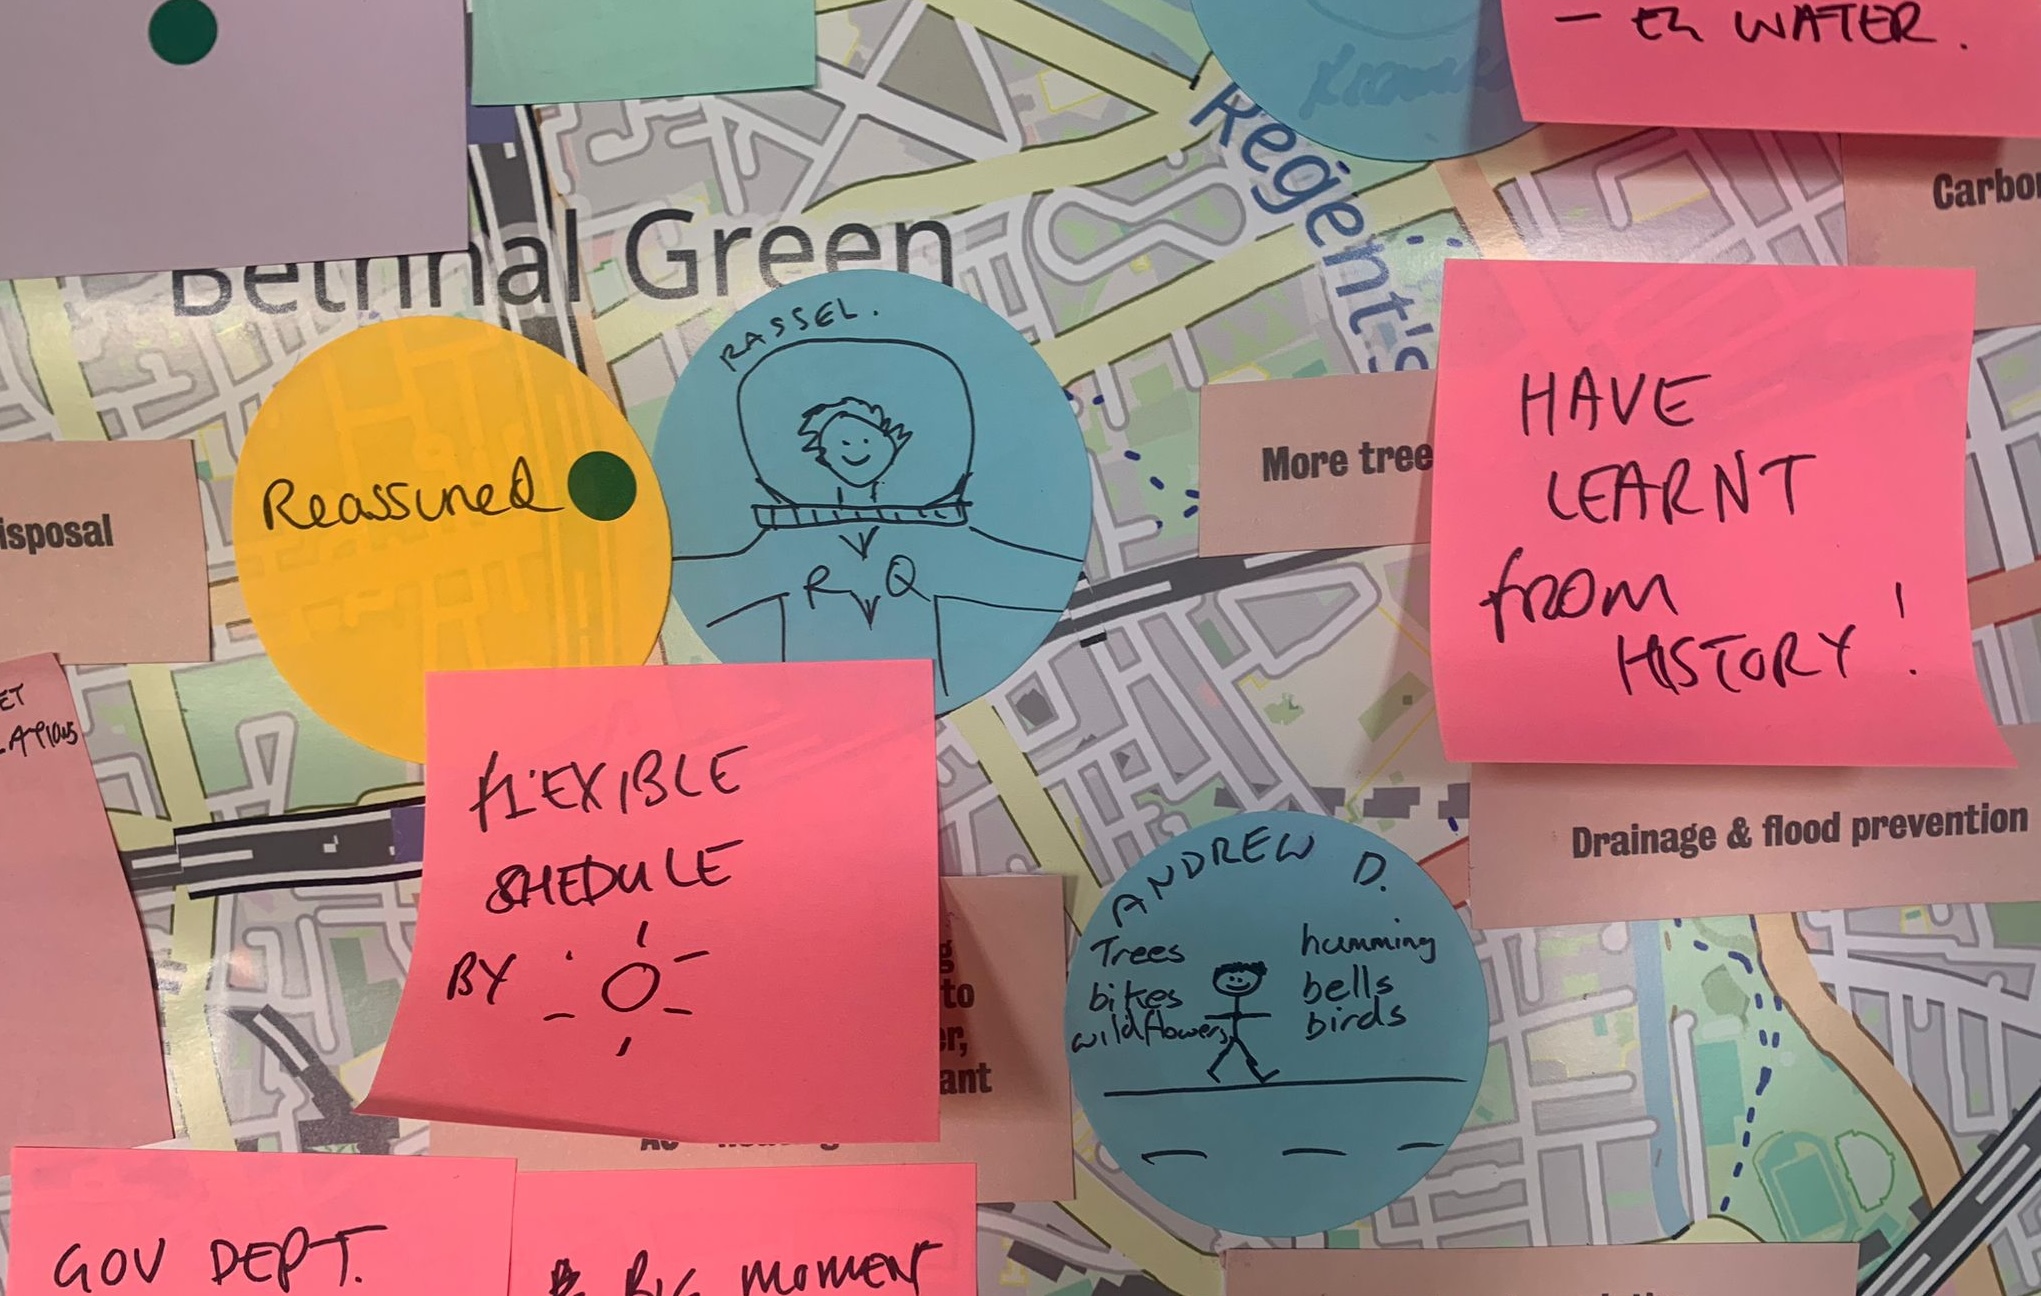 - EL WATER.
Carbon
Bethnal Green
Regent's
RASSEL.
R Q
Reassured
isposal
More tree
HAVE
LEARNT
from
HISTORY!
ET
LATIONS
FLEXIBLE
SHEDULE
BY
g
to
er,
ant
Drainage & flood prevention
ANDREW D.
Trees
bikes
wildflowers
humming
bells
birds
GOV DEPT.
BIG MOMENT